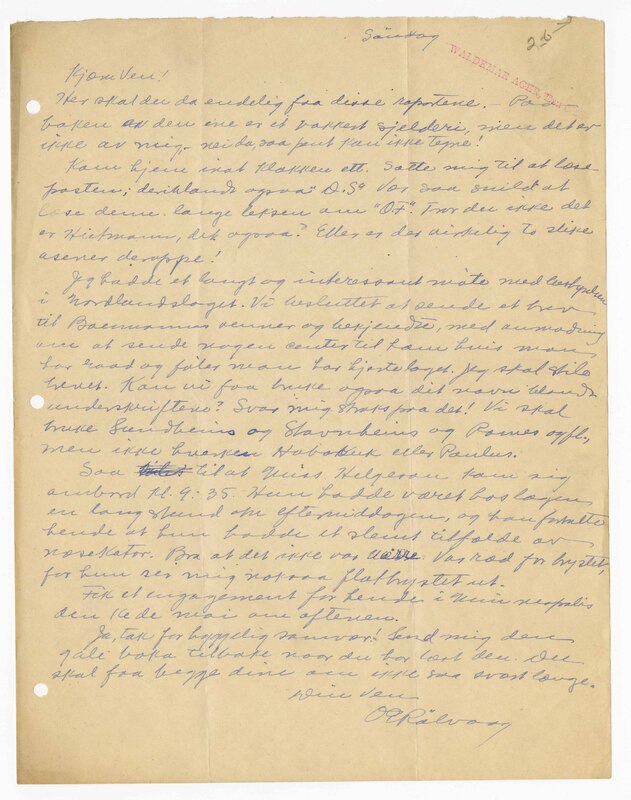 Söndag
267
WALDEMAR AGER, Pub.
Kjære Ven!
Her skal du da endelig faa disse raportene. – Paa
baken av den ene er et vakkert sjelderi, men det er
ikke av mig, – nei da, saa pent kan ikke tegne!
Kom hjem inat klokken ett. Satte mig til at læse
posten; deriblandt ogsaa "D.S" Var saa snild at
læse denne lange leksen om "O.F". Tror du ikke det
er Hietmann, dit ogsaa? Eller er der virkelig to slike
asener deroppe!
Jeg hadde et langt og interessant møte med bestyrelsen
i Nordlandslaget. Vi besluttet at sende et brev
til Baumanns venner og bekjendte, med anmodning
om at sende nogen center til ham hvis man
har raad og føler man har hjertelaget. Jeg skal stile
brevet. Kan vi faa bruke ogsaa dit navn blandt
underskriftene? Svar mig straks paa det! Vi skal
bruke Sundheims og Stavnheims og og fl.,
men ikke hverken Habakuk eller Paulus.
Saa til at Miss. Helgeson kom sig
ombord kl. 9:35. Hun hadde været hos lægen
en lang stund om eftermiddagen, og han fortalte
hende at hun hadde et slemt tilfælde av
næsekatar. Bra at det ikke var værre. Var ræd for brystet,
for hun ser mig noksaa flatbrystet ut.
Fik et engagement for hende i Minneapolis
den 4de mai om aftenen.
Ja, tak for hyggelig samvær! Send mig den
gule boka tilbake naar du har læst den. Du
skal faa begge dine om ikke saa svært længe.
Din Ven
OERölvaag